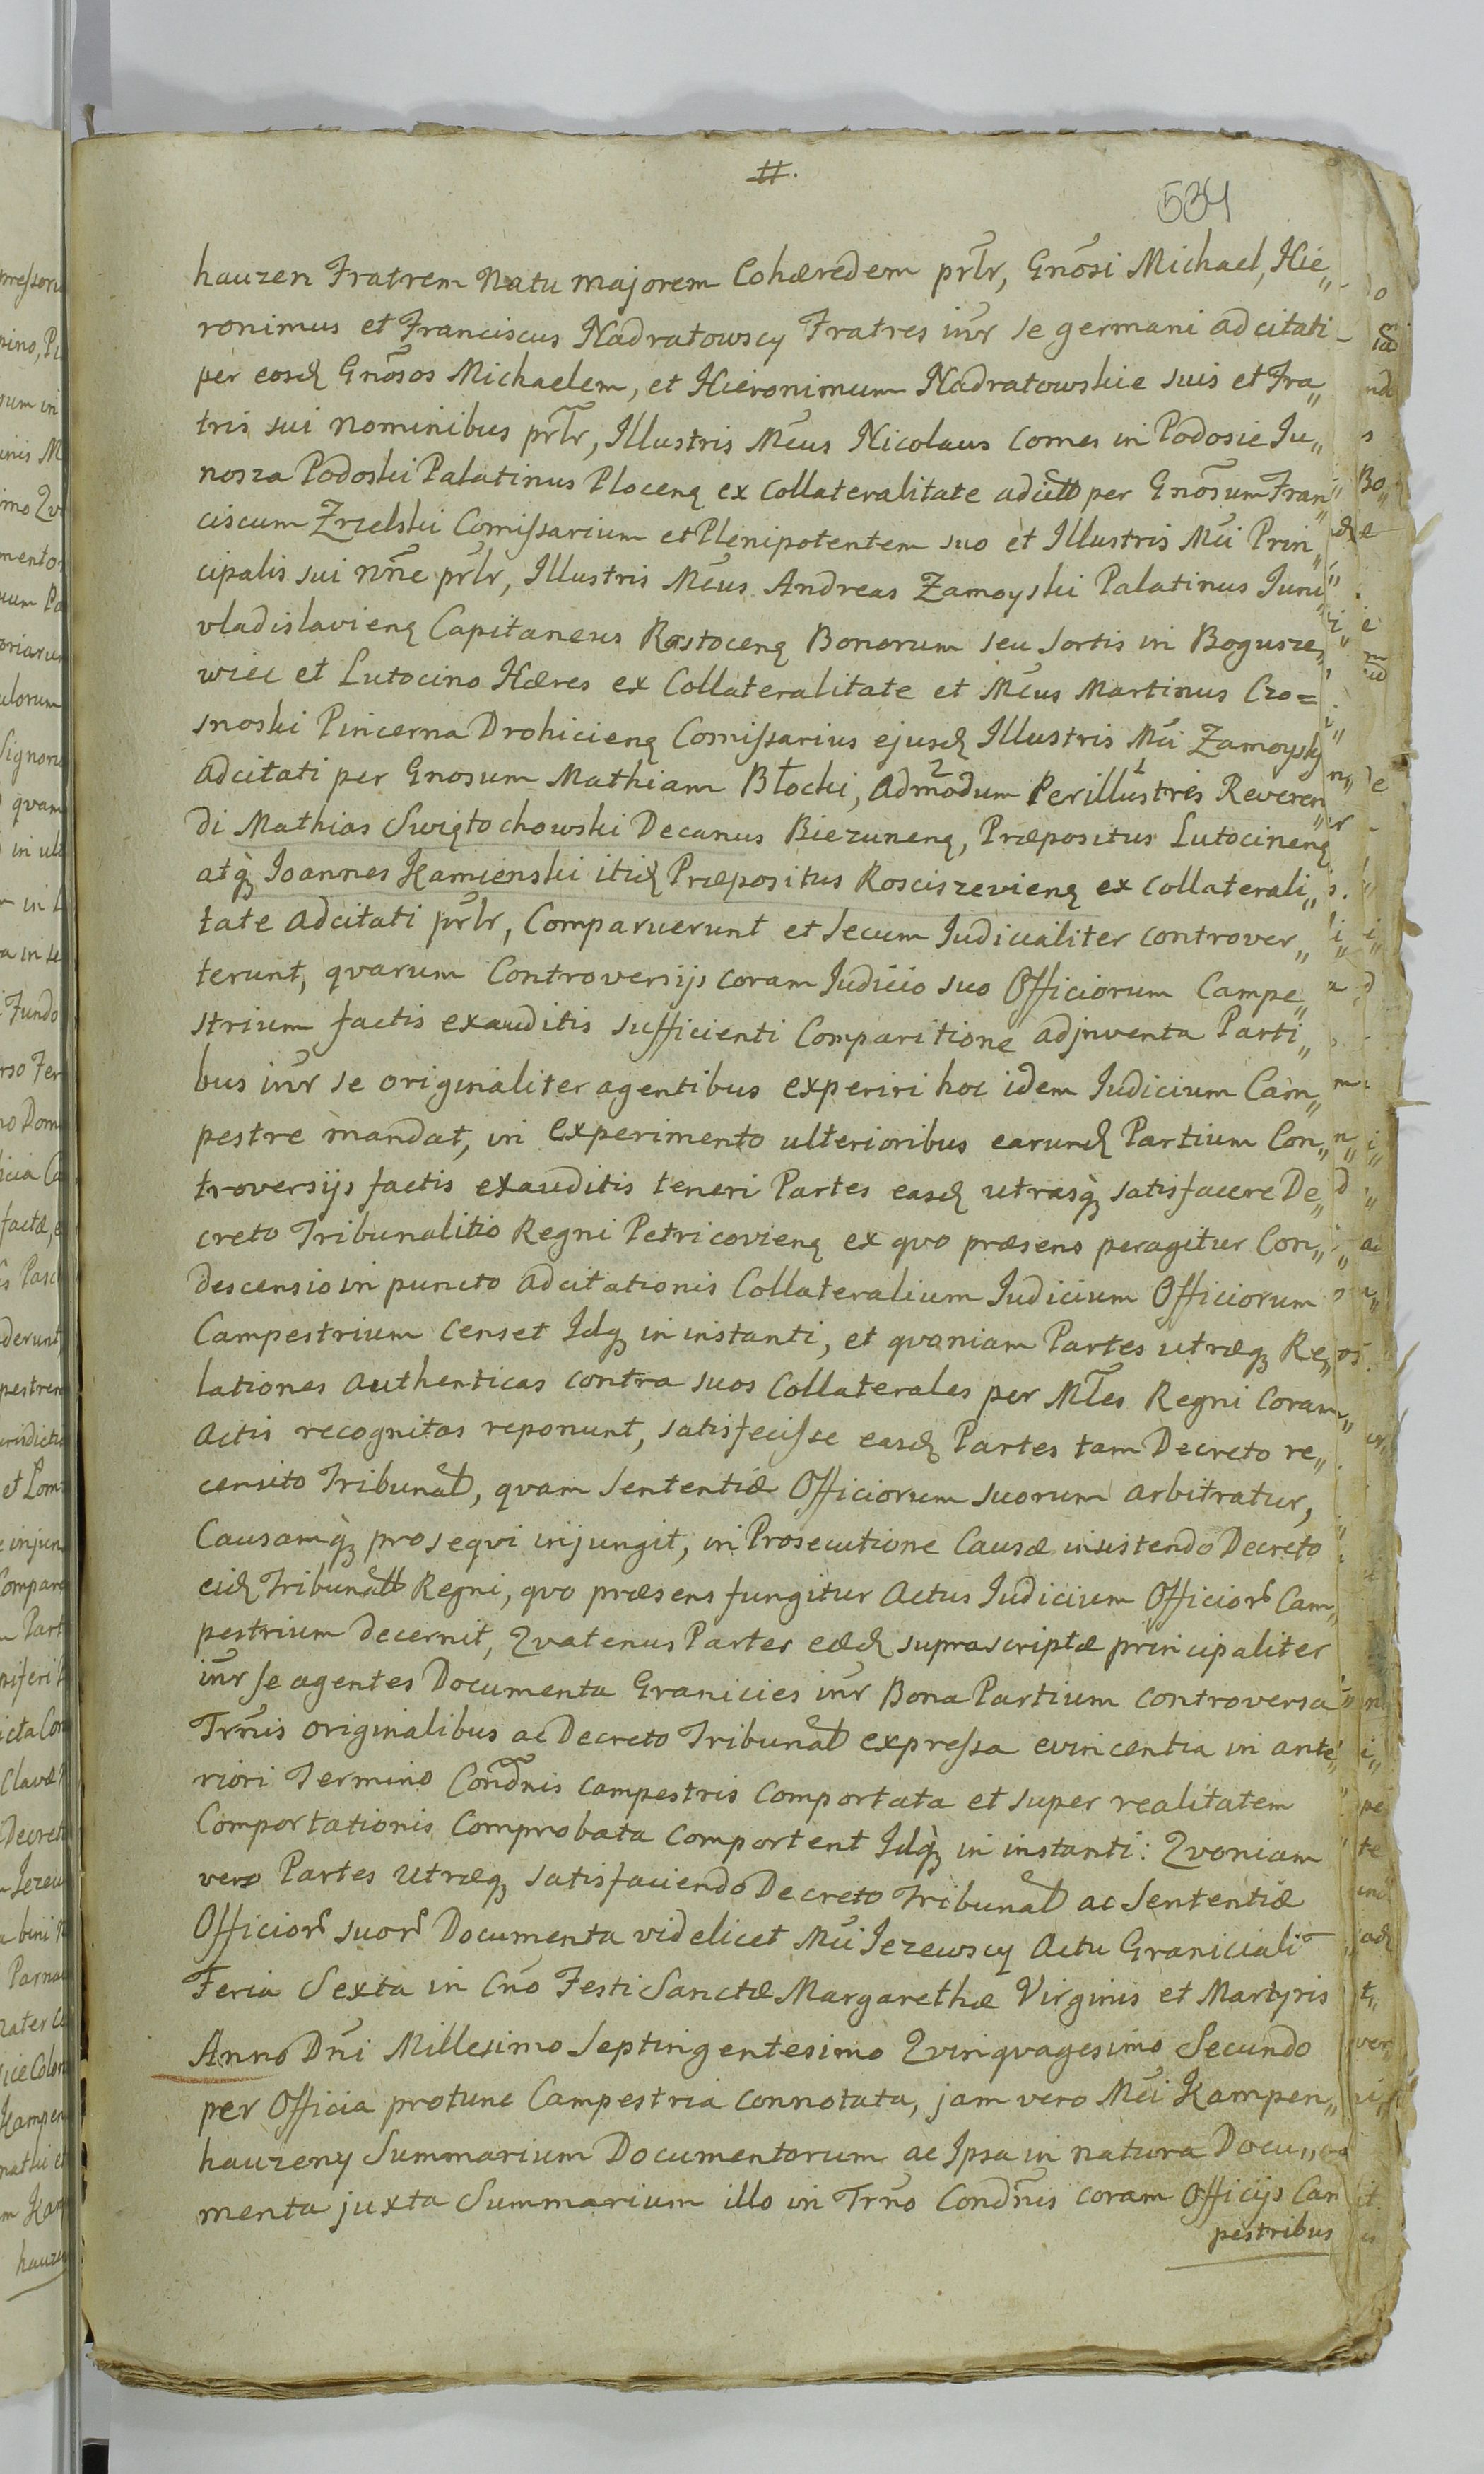 #.
534
hauzen Fratrem Natu majorem Cohæredem prlr, Gnosi Michael, Hie„
ronimus et Franciscus Nadratowscy Fratres inr se germani adcitati
per eosd Gnosos Michaelem, et Hieronimum Nadratowskie suis et Fra„
tris sui nominibus prlr, Illustris Mcus Nicolaus Comes in Podosie Ju„
nosza Podoski Palatinus Plocenq ex Collateralitate adcitt per Gnosum Fran„
ciscum Zrzelski Comissarium et Plenipotentem suo et Illustris Mci Prin„
cipalis sui nne prlr, Illustris Mcus Andreas Zamoyski Palatinus Juni„
vladislavienq Capitaneus Rostocenq Bonorum seu Sortis in Bogusze„
wiec et Lutocino Hæres ex Collateralitate et Mcus Martinus Czo=
snoski Pincerna Drohicienq Comissarius ejusd Illustris Mci Zamoysky
adcitati per Gnosum Mathiam Błocki, admodum 2 Perillustris 1 Reveren„
di Mathias Swiętochowski Decanus Biezunenq, Præpositus Lutocinenq
atq Joannes Kamienski itid Præpositus Rosciszevienq ex Collaterali„
tate adcitati prlr, Comparuerunt et secum Judicialiter controver„
terunt, qvarum Controversijs coram Judicio suo Officiorum Campe„
strium factis exauditis sufficienti Comparitione adjnventa Parti„
bus inr se originaliter agentibus experiri hoc idem Judicium Cam„
pestre mandat, in Experimento ulterioribus earund Partium Con„
troversijs factis exauditis teneri Partes easd utrasq satisfacere De„
creto Tribunalitio Regni Petricovienq ex qvo præsens peragitur Con„
descensio in puncto adcitationis Collateralium Judicium Officiorum
Campestrium censet Idq in instanti, et qvoniam Partes utræq Re„
lationes authenticas contra suos Collaterales per Mtles Regni Coram
Actis recognitas reponunt, satisfecisse easd Partes tam Decreto re„
censito Tribunal, qvam Sententiæ Officiorum suorum arbitratur,
Causamq proseqvi injungit, in Prosecutione Causæ insistendo Decreto
eid Tribunall Regni, qvo præsens fungitur Actus Judicium Officior Cam„
pestrium decernit, Qvatenus Partes eæd suprascriptæ principaliter
inr se agentes Documenta Granicies inr Bona Partium controversa
Trnis originalibus ac Decreto Tribunal expressa evincentia in ante„
riori Termino Condnis campestris Comportata et super realitatem
Comportationis Comprobata Comportent Idq in instanti: Qvoniam
vero Partes utræq satisfaciendo Decreto Tribunal ac Sententiæ
Officior suor Documenta videlicet Mci Jezewscy Actu Graniciali
Feria Sexta in Cno Festi Sanctæ Margarethæ Virginis et Martyris
Anno Dni Millesimo Septingentesimo Qvinqvagesimo Secundo
per Officia protunc Campestria connotata, jam vero Mci Kampen„
hauzeny Summarium Documentorum ac Ipsa in natura Docu„
menta juxta Summarium illo in Trno Condnis coram Officijs Cam
pestribus